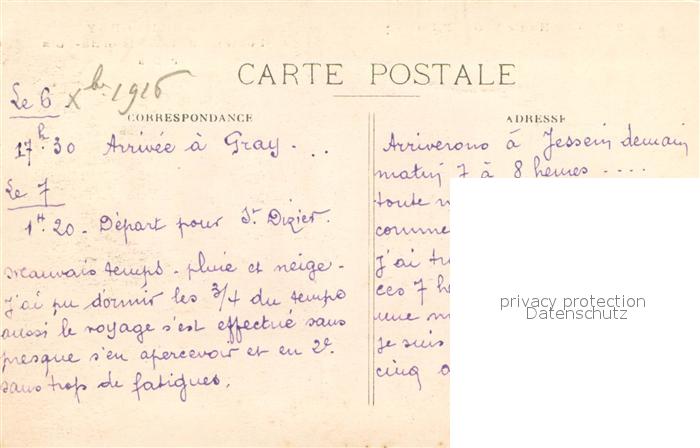 CARTE POSTALE
CORRESPONDANCE
Le 6 Xbre 1916
17h.30 Arrivée à Gray. ...
Le 7
1H.20. Départ pour St Dizier.
Mauvais temps. pluie et neige.
J'ai pu dormir les 3/4 du temps
aussi le voyage s'est effectué sans
presque s'en apercevoir et en 2e
sans trop de fatigues.
ADRESSE
Arriverons à Jessein demain
matin 7 à 8 heures ....
toute
comme
J'ai
ces 7
une
je suis
cinq
privacy protection
Datenschutz